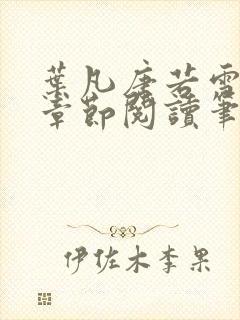 葉凡唐若雪
章節閱讀筆
伊佐木李果